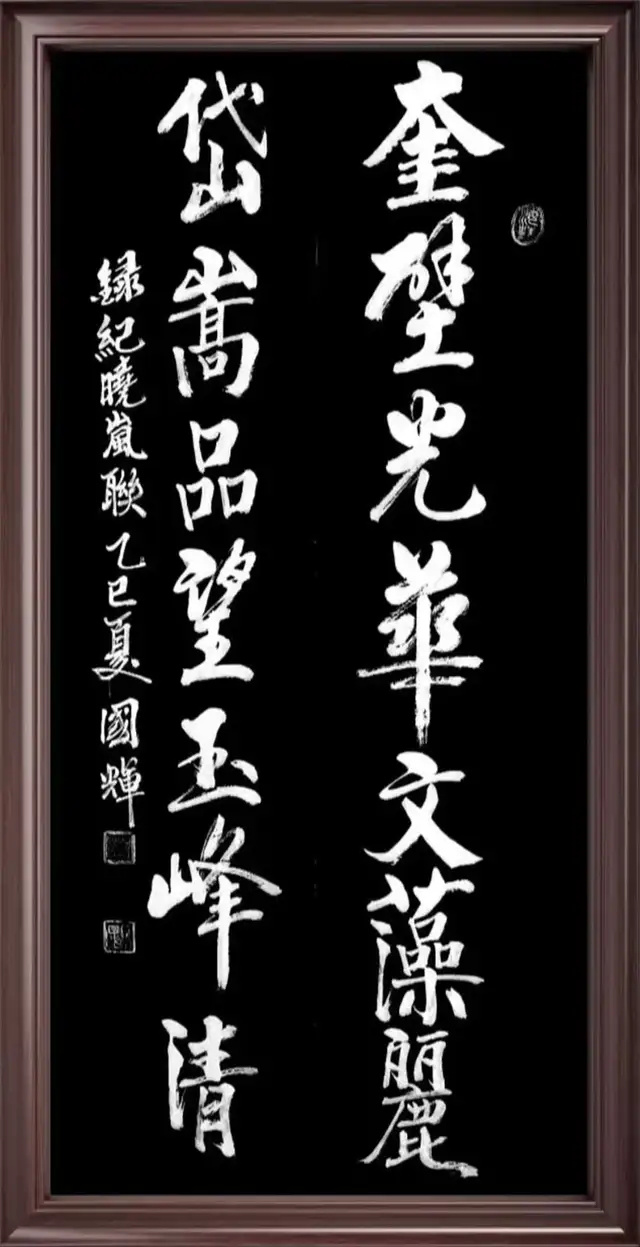 奎壁光華文藻麗
岱嵩品望玉峰清
録紀曉嵐聯乙巳夏國輝